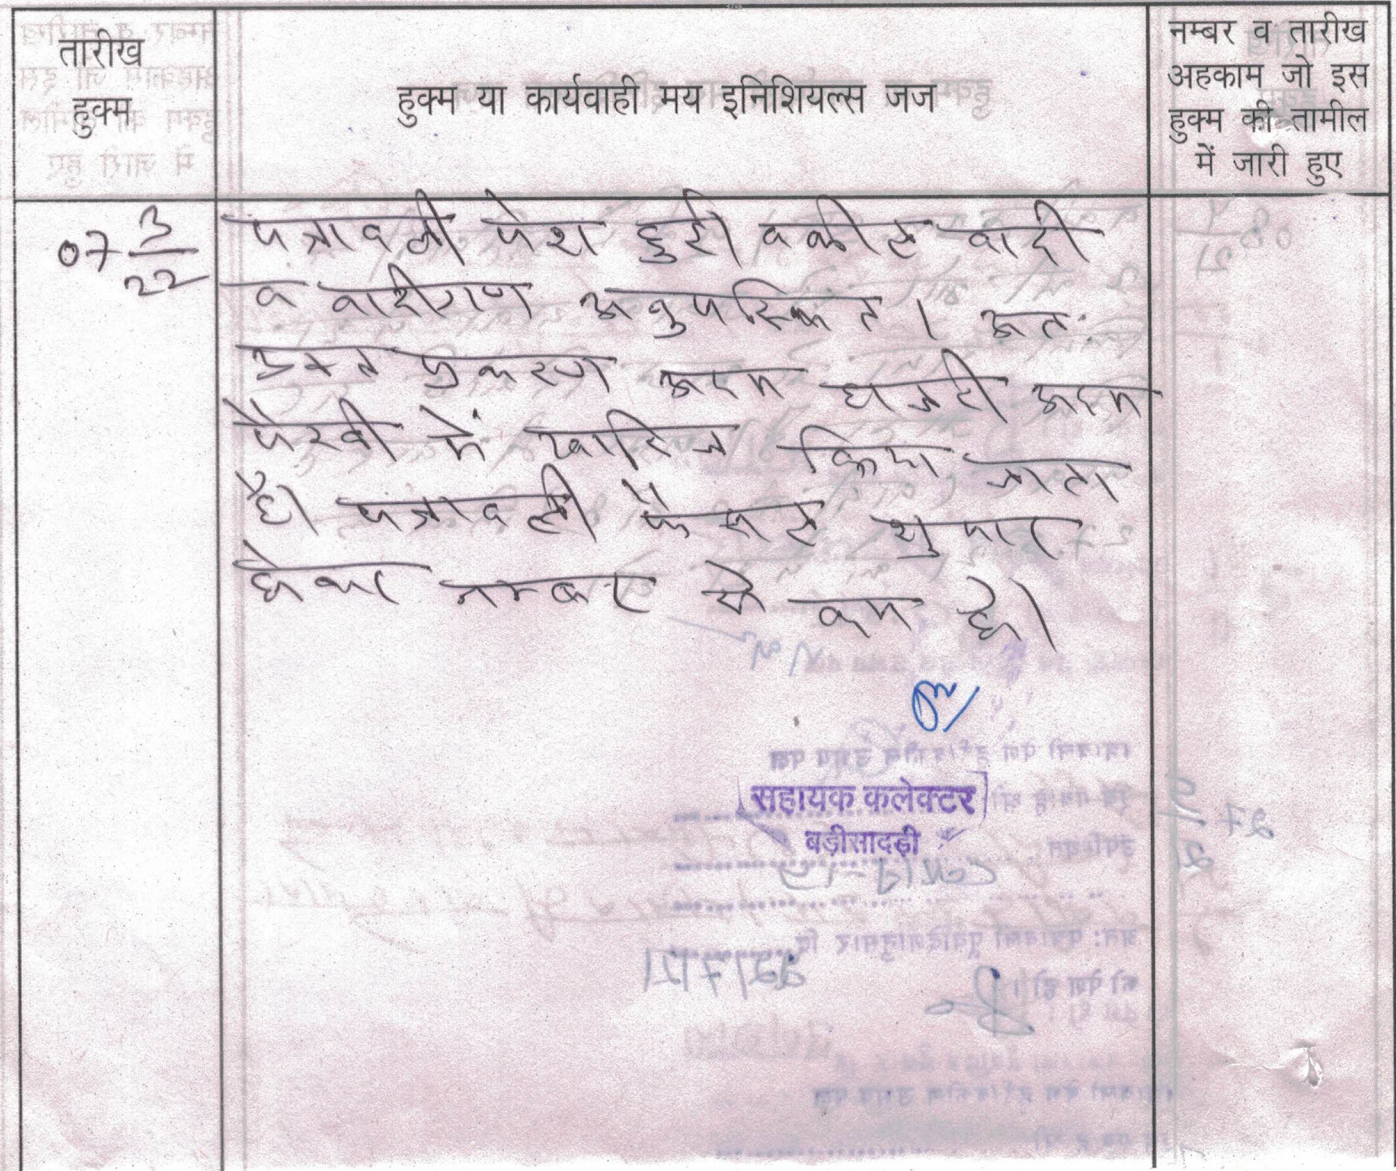 तारीख
हुक्म
हुक्म या कार्यवाही मय इनिशियल्स जज
नम्बर व तारीख
अहकाम जो इस
हुक्म की तामील
में जारी हुए
07 3/22
पत्रावली पेश हुई। वकील वादी
व वादीगण अनुपस्थित । अतः
उक्त प्रकरण अदम हाजरी अदम
पैरवी में खारिज किया जाता
है। पत्रावली फैसल शुमार
होकर नम्बर से कम हो।
सहायक कलेक्टर
बड़ीसादड़ी